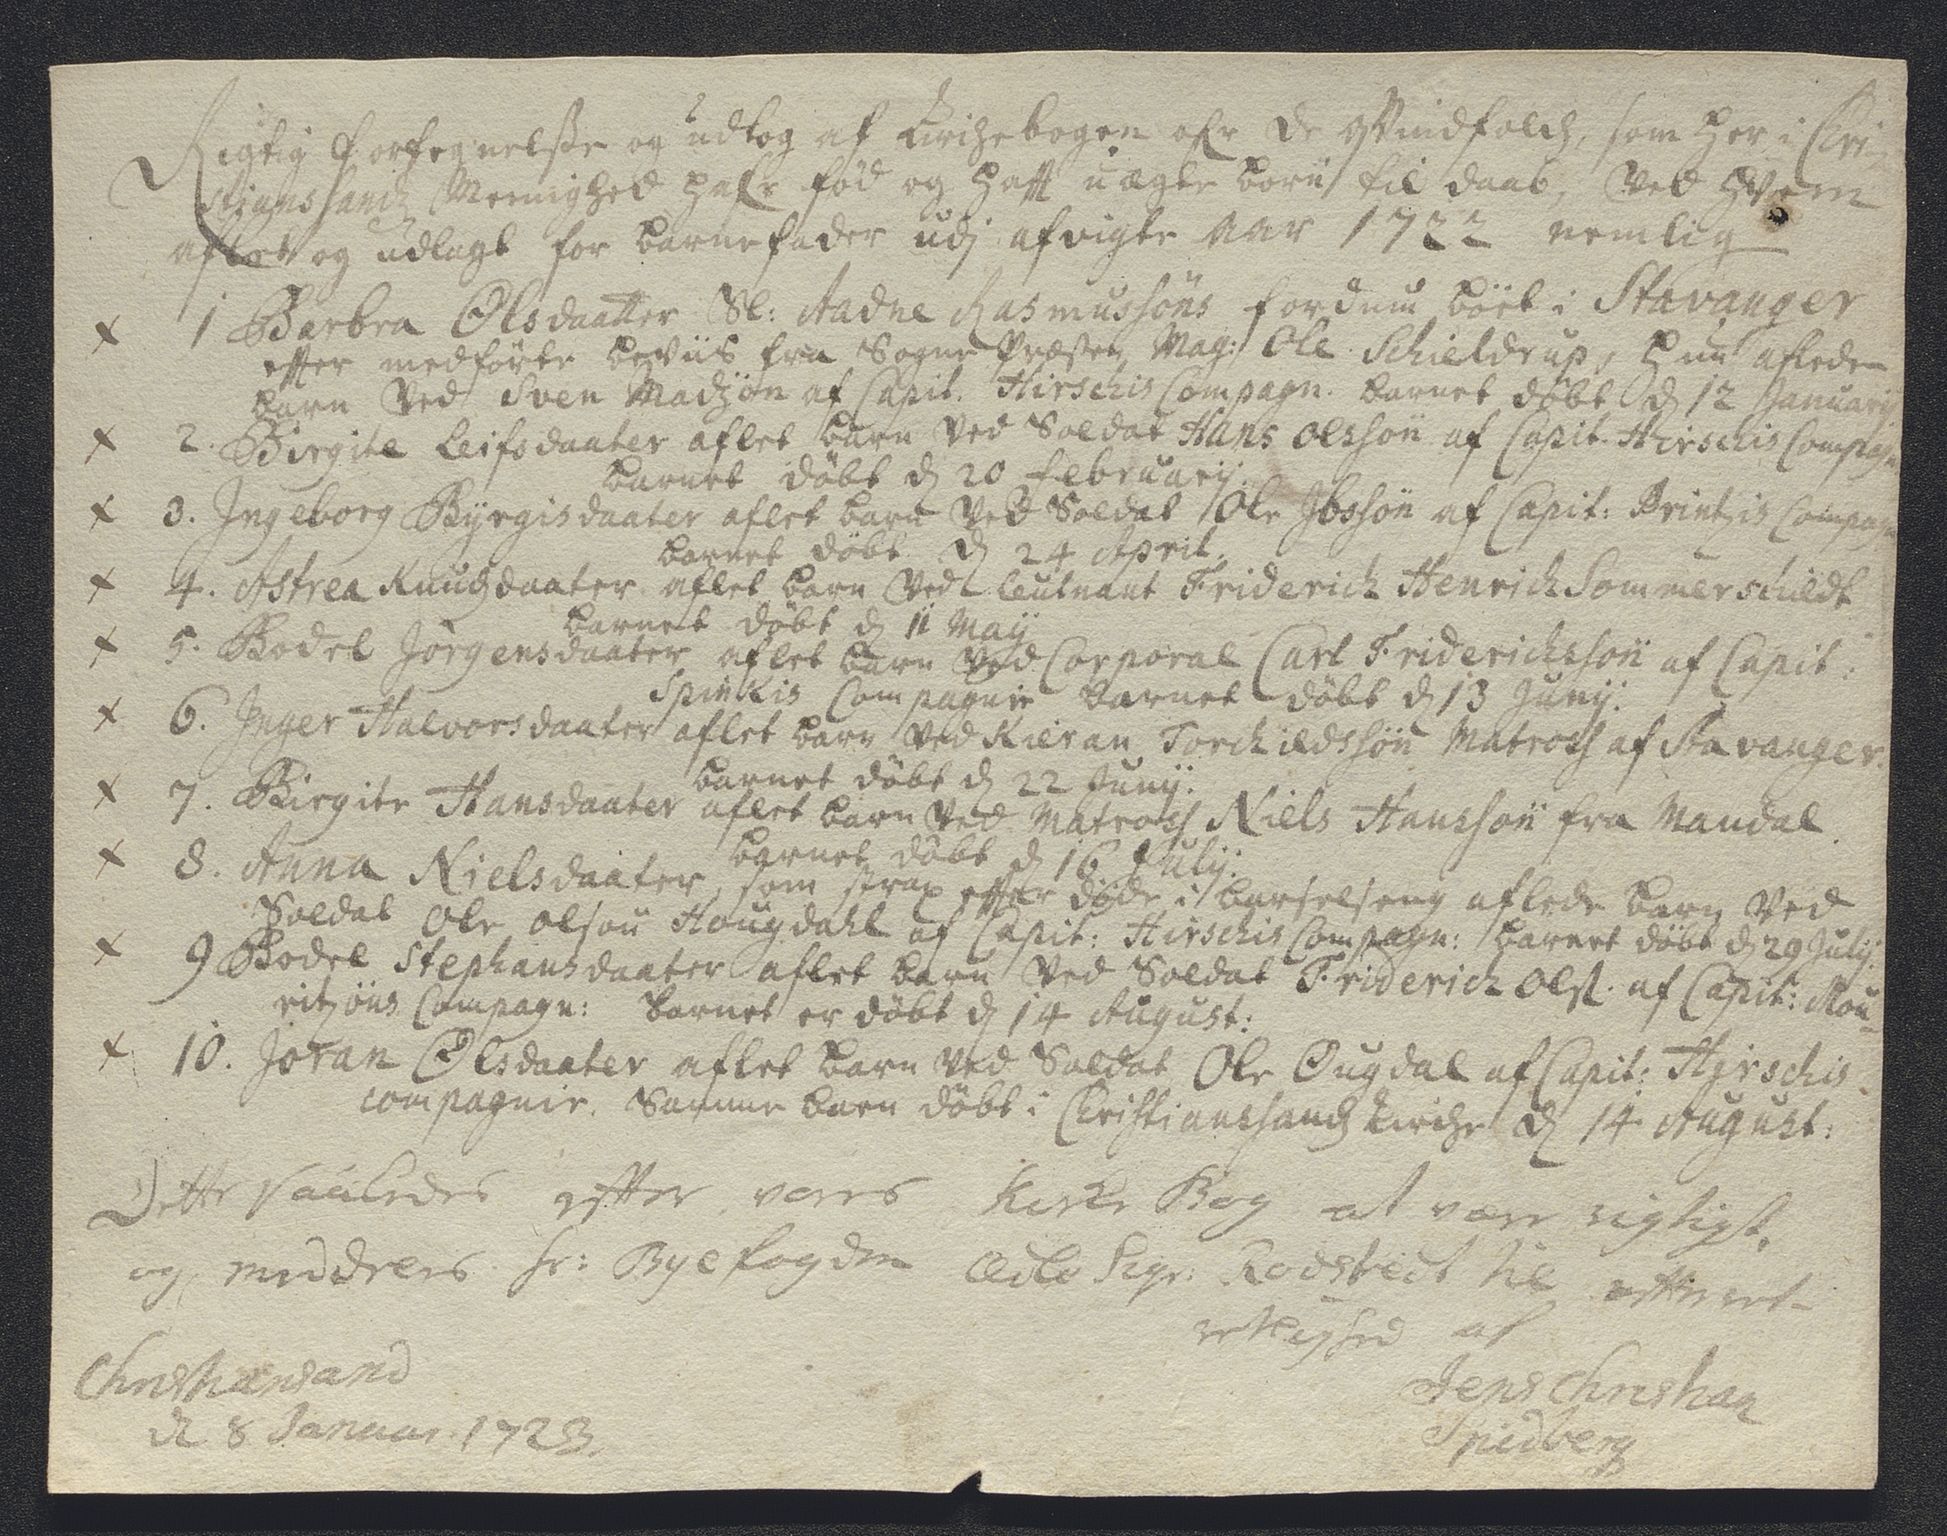 Rigtig Forteignelsse og udtog af Kirchebogen ofr de Qvindfolch, som her i Chri-
stianssandz Meenighed hafr fød og hafft uægte börn til daab, Ved Hvem
aflet og udlagt for barnefader udj afvigte Aar 1722 nemlig
x 1 Barbra Olsdaatter Sl: Aadne Rasmussöns fordum böel i Stavanger
effter medförte beviis fra Sogne Præsten Mag: Ole Schieldrup, hun aflede
barn Ved Sven Madzön af Capit. Hirschis Compagn. barnet döbt d 12 Januarij
x 2. Birgite Leifsdaater aflet barn Ved Soldat Hans Olssön af Capit. Hirschis Compagn
barnet döbt d 20 februarij.
x 3. Ingeborg Byrgisdaater aflet barn Ved Soldat Ole Ibssön af Capit: Printzis Compagn
barnet döbt d 24 April.
x 4. Astrea Knudsdaater aflet barn Ved Leutnant Friderich Henrich Sommerschildt
barnet döbt d 11 Maij
x 5. Bodel Jörgensdaater aflet barn Ved Corporal Carl Friderichssön af Capit:
Spinkis Compagnie barnet döbt d 13 Junij.
x 6. Inger Halvorsdaater aflet barn Ved Kieran Torchildssön Matross af Stavanger.
barnet döbt d 22 Junij.
x 7. Birgite Hansdaater aflet barn Ved Matross Niels Hanssön fra Mandal
barnet döbt d 16 Julij.
x 8. Anna Nielsdaater, som strax effter döde i barselseng aflede barn Ved
Soldat Ole Olson Hougdahl af Capit: Hirschis Compagn: barnet döbt d 29 Julij.
x 9 Bodel Stephansdaater aflet barn Ved Soldat Friderich Ols. af Capit: Mou-
ritzöns Compagn: barnet er döbt d 14 August:
x 10. Joran Olsdaater aflet barn Ved Soldat Ole Ougdal af Capit: Hirschis
compagnie. Samme barn döbt i Christianssandz Kirche d 14 August:
Dette saaledes efter vores Kirke Bog at være rigtigt,
og meddeles hr: Byefogden Rodsteedt til efterret-
retlighed af
Christiansand
d 8 Januar 1723.
Jens Christian
Spidberg